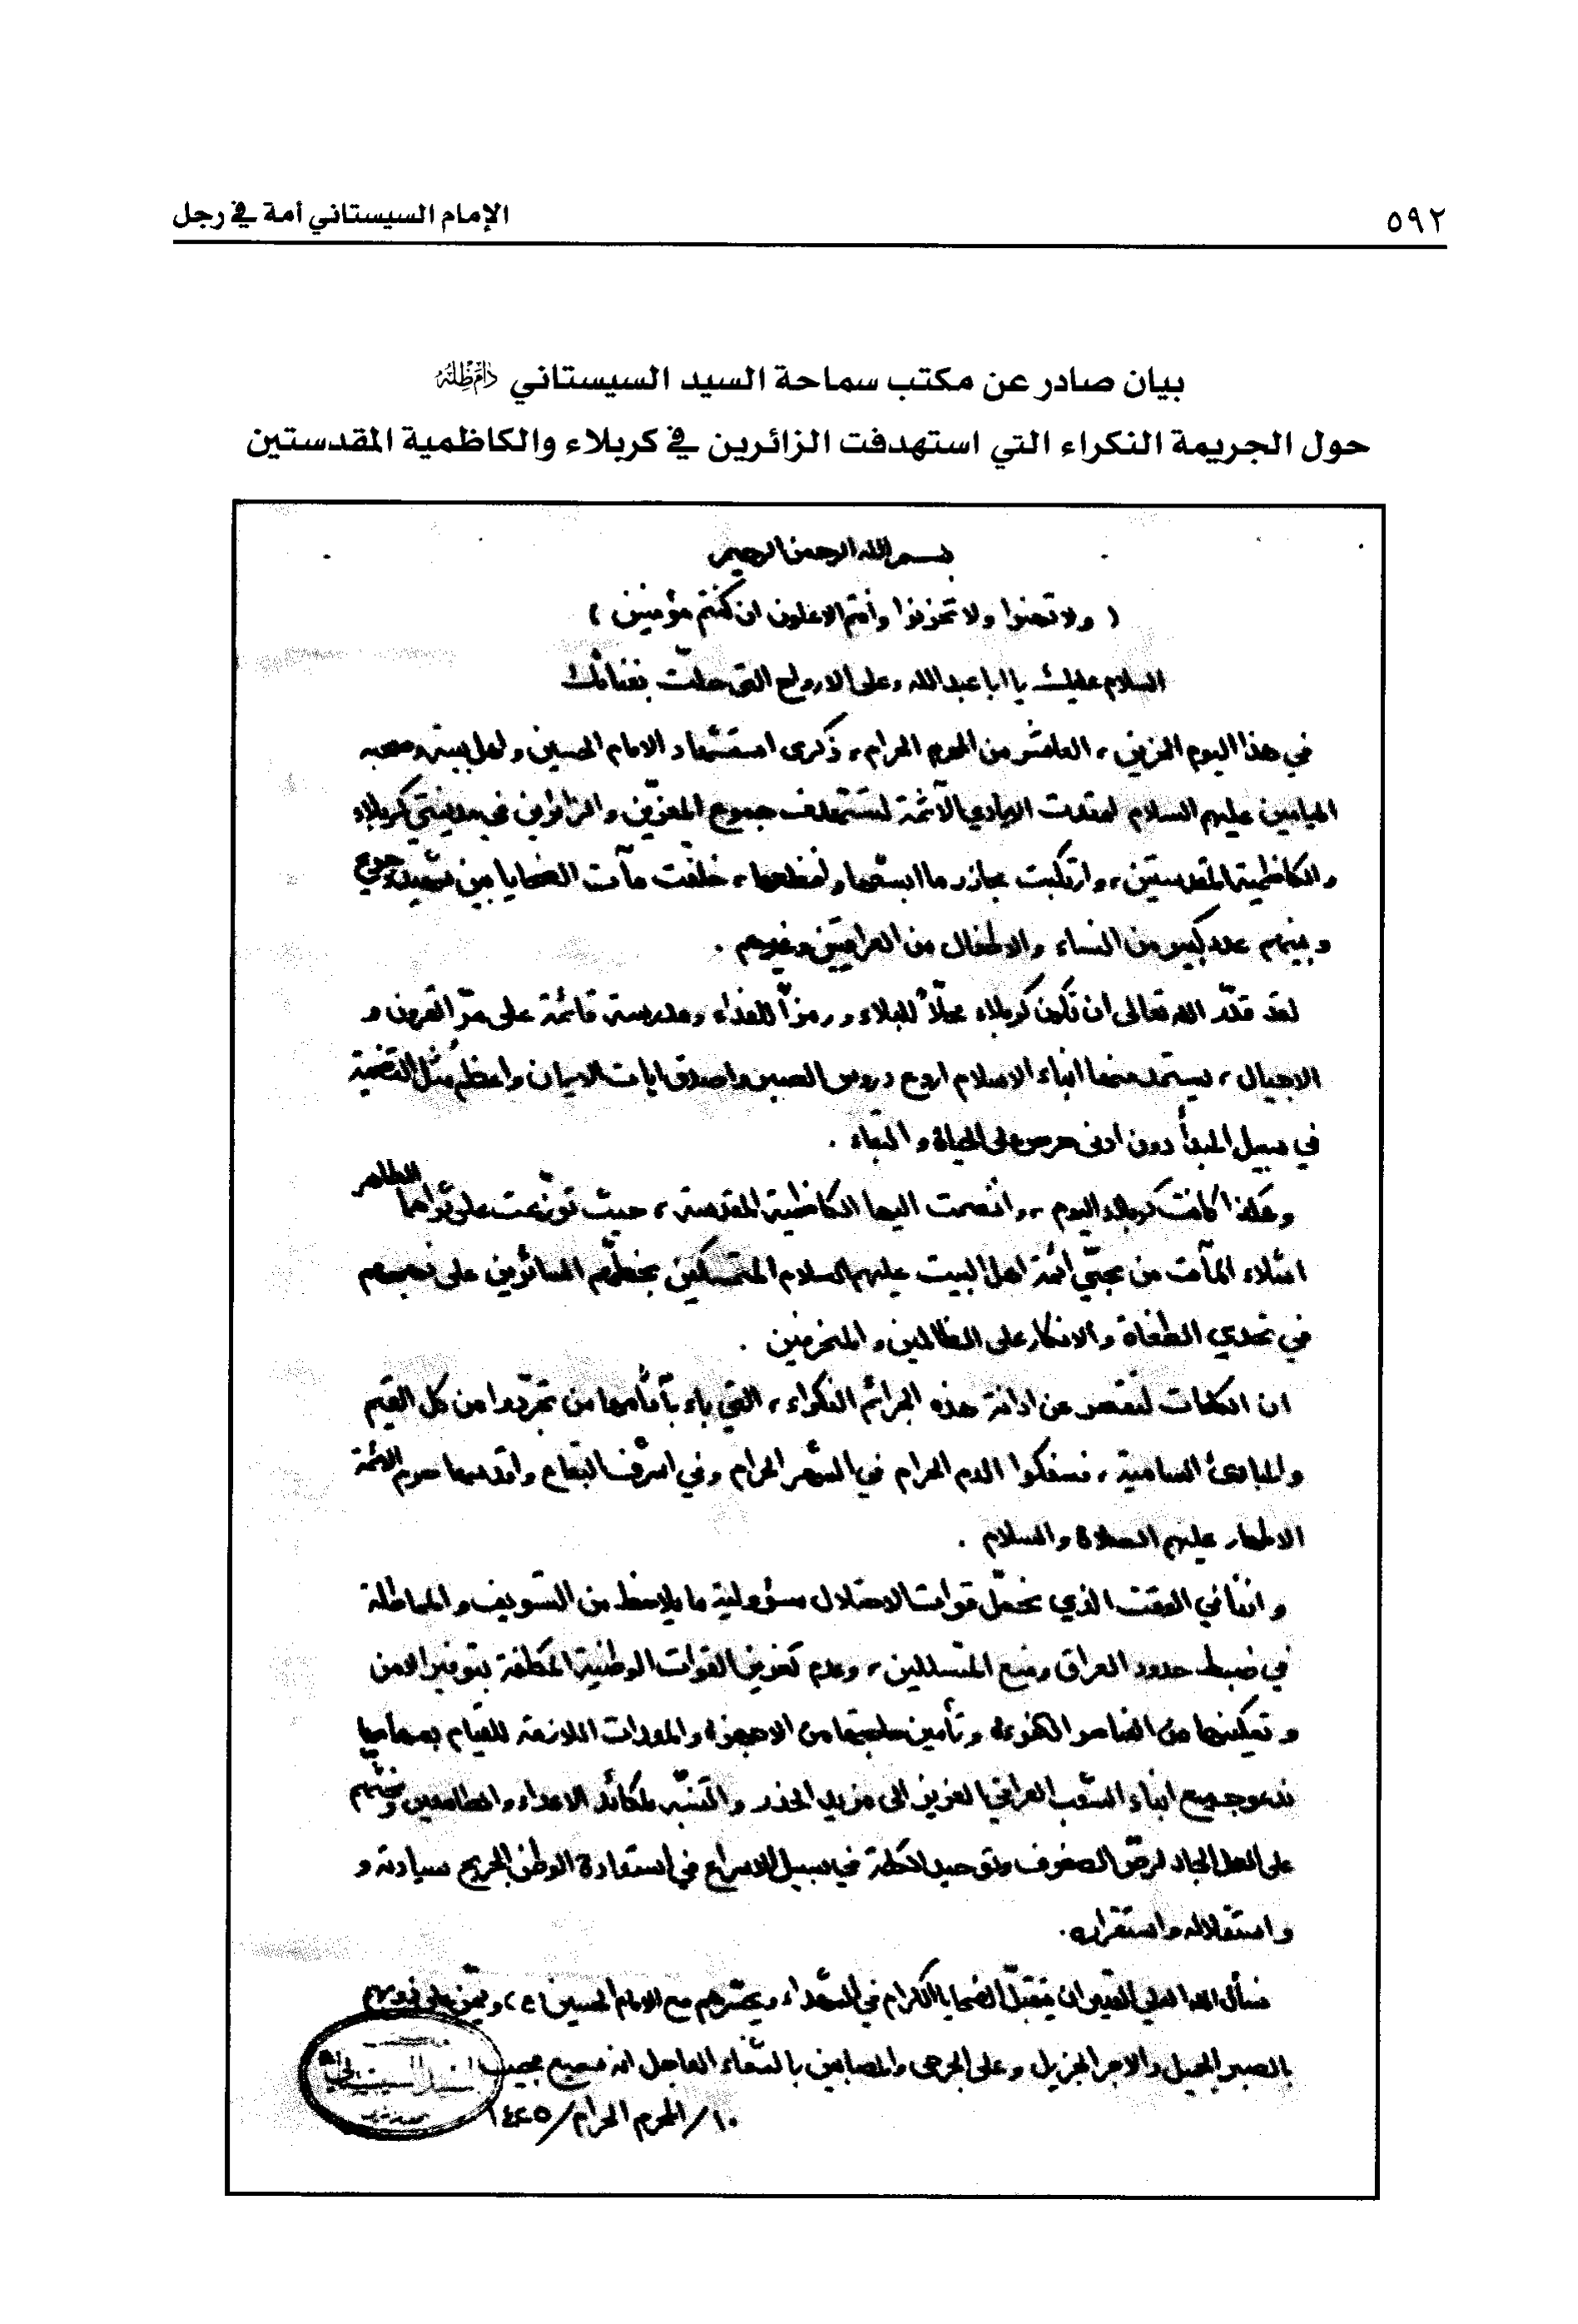 ٥٩٢
الإمام السيستاني أمة في رجل
بيان صادر عن مكتب سماحة السيد السيستاني دام ظله
حول الجريمة النكراء التي استهدفت الزائرين في كربلاء والكاظمية المقدستين
بسم الله الرحمن الرحيم
( ولا تهنوا ولا تحزنوا وأنتم الاعلون ان كنتم مؤمنين )
السلام عليك يا ابا عبد الله وعلى الارواح التي حلّت بفنائك
في هذا اليوم الحزين ، العاشر من المحرم الحرام ، ذكرى استشهاد الامام الحسين واهل بيته وصحبه
الميامين عليهم السلام امتدت الايادي الآثمة لتستهدف جموع المعزّين والزائرين في مدينتي كربلاء
والكاظمية المقدستين ، وارتكبت مجازر ما ابشعها وافظعها ، خلّفت مآت الضحايا بين شهيد وجريح
وبينهم عدد كبير من النساء والاطفال من العراقيين وغيرهم .
لقد قدّر الله تعالى ان تكون كربلاء محلاً للبلاء ورمزاً للفداء ومدرسة قائمة على مرّ القرون و
الاجيال ، يستمد منها ابناء الاسلام اروع دروس الصبر واصدق ايات الايمان واعظم مُثل التضحية
في سبيل المبدأ دون ادنى حرص على الحياة والبقاء .
وهكذا كانت كربلاء اليوم ، وانضمت اليها الكاظمية المقدسة ، حيث توزعت على ثراهما الطاهر
اشلاء المآت من محبّي ائمة اهل البيت عليهم السلام المتمسكين بخطّهم السائرين على نهجهم
في تحدي الطغاة والانكار على الظالمين والمنحرفين .
ان الكلمات لتقصر عن ادانة هذه الجرائم النكراء ، التي باء بآثامها من تجرّدوا من كل القيم
والمبادئ السامية ، فسفكوا الدم الحرام في الشهر الحرام وفي اشرف البقاع واقدسها حرم الائمة
الاطهار عليهم الصلاة والسلام .
واننا في الوقت الذي نحمّل قوات الاحتلال مسؤولية ما يلاحظ من التسويف والمماطلة
في ضبط حدود العراق ومنع المتسللين ، وعدم تعزيز القوات الوطنية المكلفة بتوفير الامن
وتمكينها من العناصر الكفوءة وتأمين حاجتها من الاجهزة والمعدات اللازمة للقيام بمهامها
ندعو جميع ابناء الشعب العراقي العزيز الى مزيد الحذر والتنبّه لمكائد الاعداء والطامعين ونحثّهم
على العمل الجاد لرصّ الصفوف وتوحيد الكلمة في سبيل الاسراع في استعادة الوطن الجريح سيادته و
واستقلاله واستقراره.
نسأل الله العلي القدير ان يتقبّل الضحايا الكرام في الشهداء ويحشرهم مع الامام الحسين (ع) ويمنّ على ذويهم
بالصبر الجميل والاجر الجزيل وعلى الجرحى والمصابين بالشفاء العاجل انه سميع مجيب
١٠/المحرم الحرام/١٤٢٥